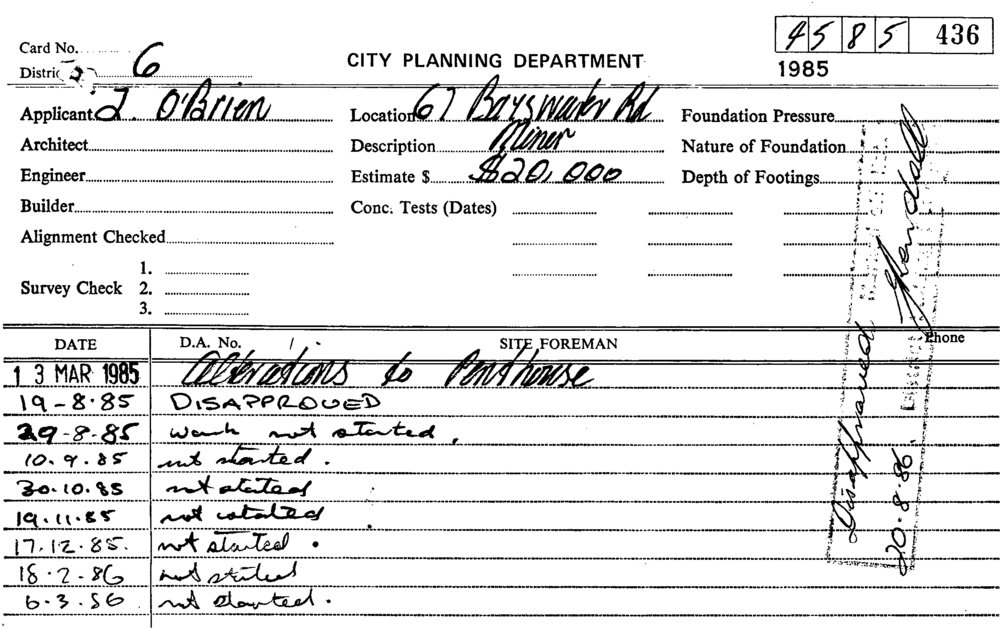 4585 436
Card No.
CITY PLANNING DEPARTMENT
1985
District 6
Applicant J. O'Brien Location 67 Bayswater Rd Foundation Pressure
Architect Description Minor Nature of Foundation
Engineer Estimate $ $20,000 Depth of Footings
Builder Conc. Tests (Dates)
Alignment Checked
1.
Survey Check 2.
3.
DATE D.A. No. SITE FOREMAN Phone
13 MAR 1985 Alterations to Penthouse
19-8-85 DISAPPROVED
29-8-85 work not started.
10.9.85 not started.
30.10.85 not started
19.11.85 not started
17.12.85. not started.
18-2-86 not started
6.3.86 not started.
Disapproved
20.8.86.